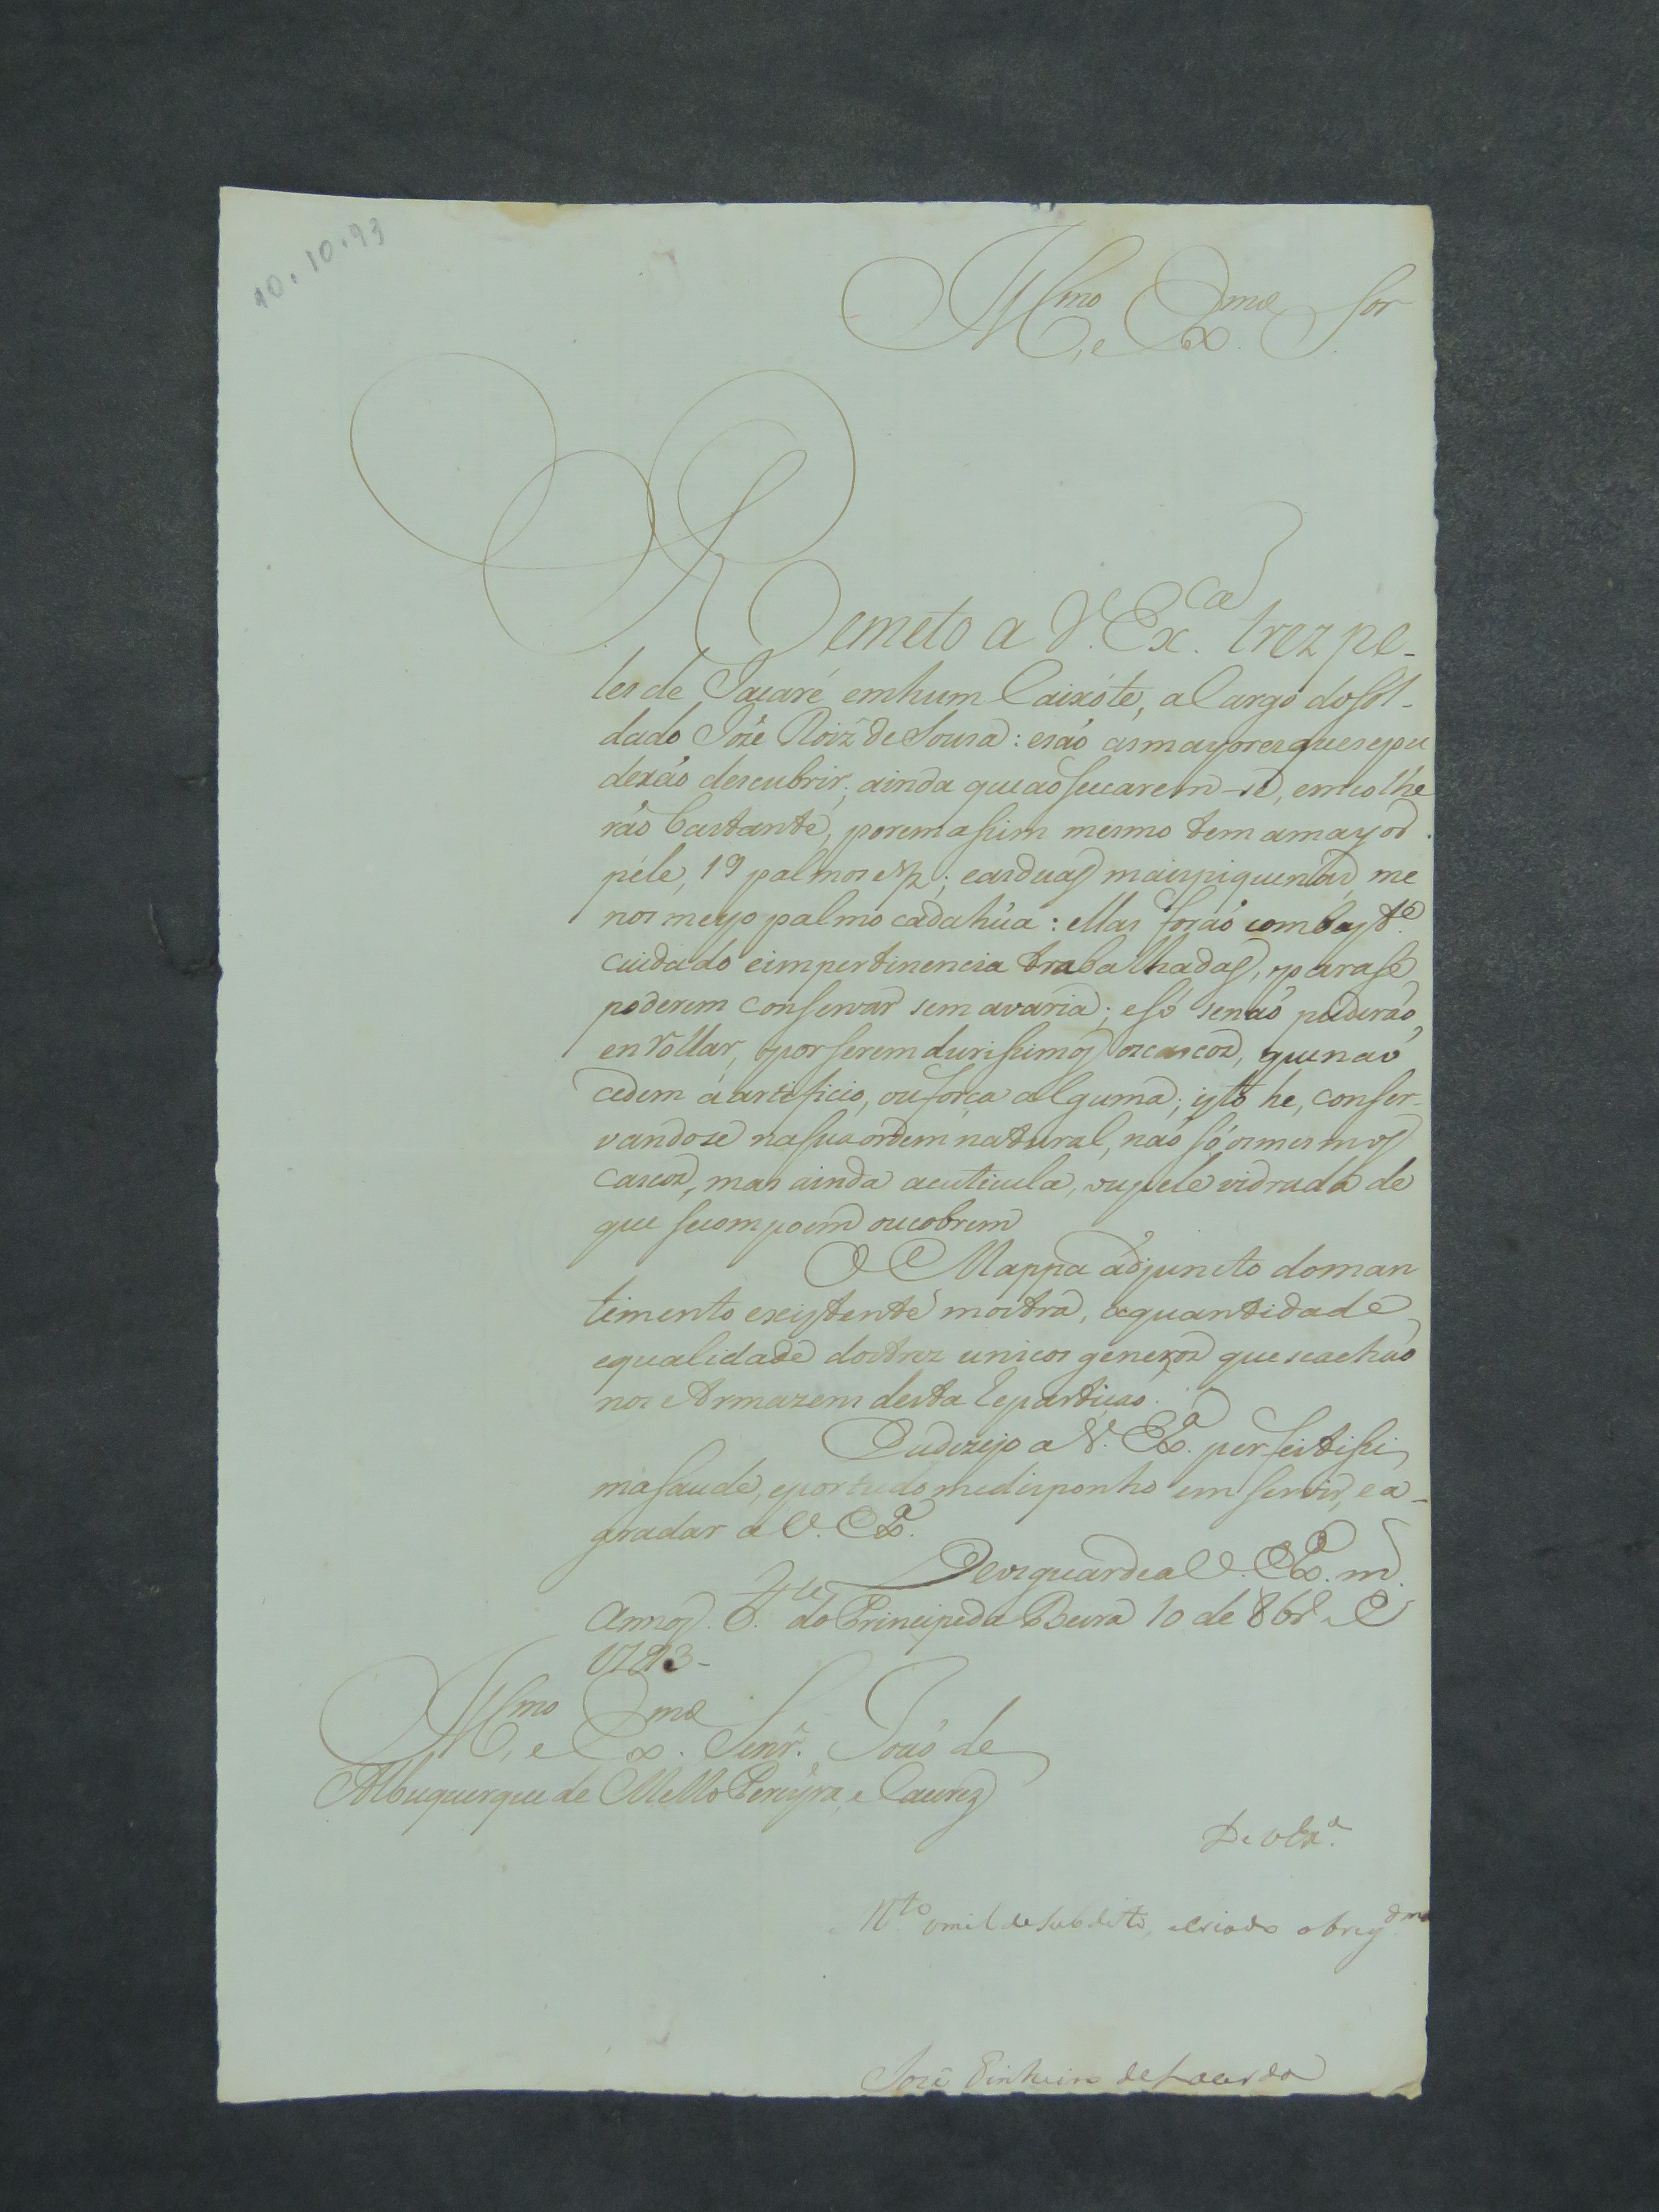 10.10.93
Ill.mo, e Ex.mo Sor
Remeto a V. Ex.ca trez pe-
les de Jacaré em hum Caixóte, a Cargo do Sol-
dado José Roiz de Sousa: esáo as mayores que se pu
deráo descubrir; ainda que ao secarem-se, emcolhe
ráo bastante, porem assim mesmo tem a mayor
péle, 19 palmos e 1/2; e as duas mais piquenas, me
nos meyo palmo cada húa: ellas foráo com bast.e
cuidado e impertinencia trabalhadas, para se
poderem conservar sem avaria; e só se náo puderáo,
enrollar, por serem durissimos os cascos, que náo
cedem á artificio, ou força alguma; isto he, conser-
vandose na sua ordem natural, náo só os mesmos
cascos, mas ainda a cuticula, ou pele vidrada de
que se compoem ou cobrem
O Mappa adjuncto do man
timento existente mostra, a quantidade
e qualidade dos trez unicos generos que se acháo
nos Armazens desta Repartiçáo.
Eu dezejo a V. Ex.a perfeitissi
ma saude, e por tudo me disponho em servir, e a-
gradar a V. Ex.a
Deos guarde a V. Ex.a m.s
annos. F.te do Principe da Beira 10 de 8br.o de
1793-
Ill.mo, e Ex.mo Senr. Joáo de
Albuquerque de Mello Pereyra, e Caceres
De V Ex.a
M.to omilde subdito, e criado obrig.dmo
José Pinheiro de Lacerda